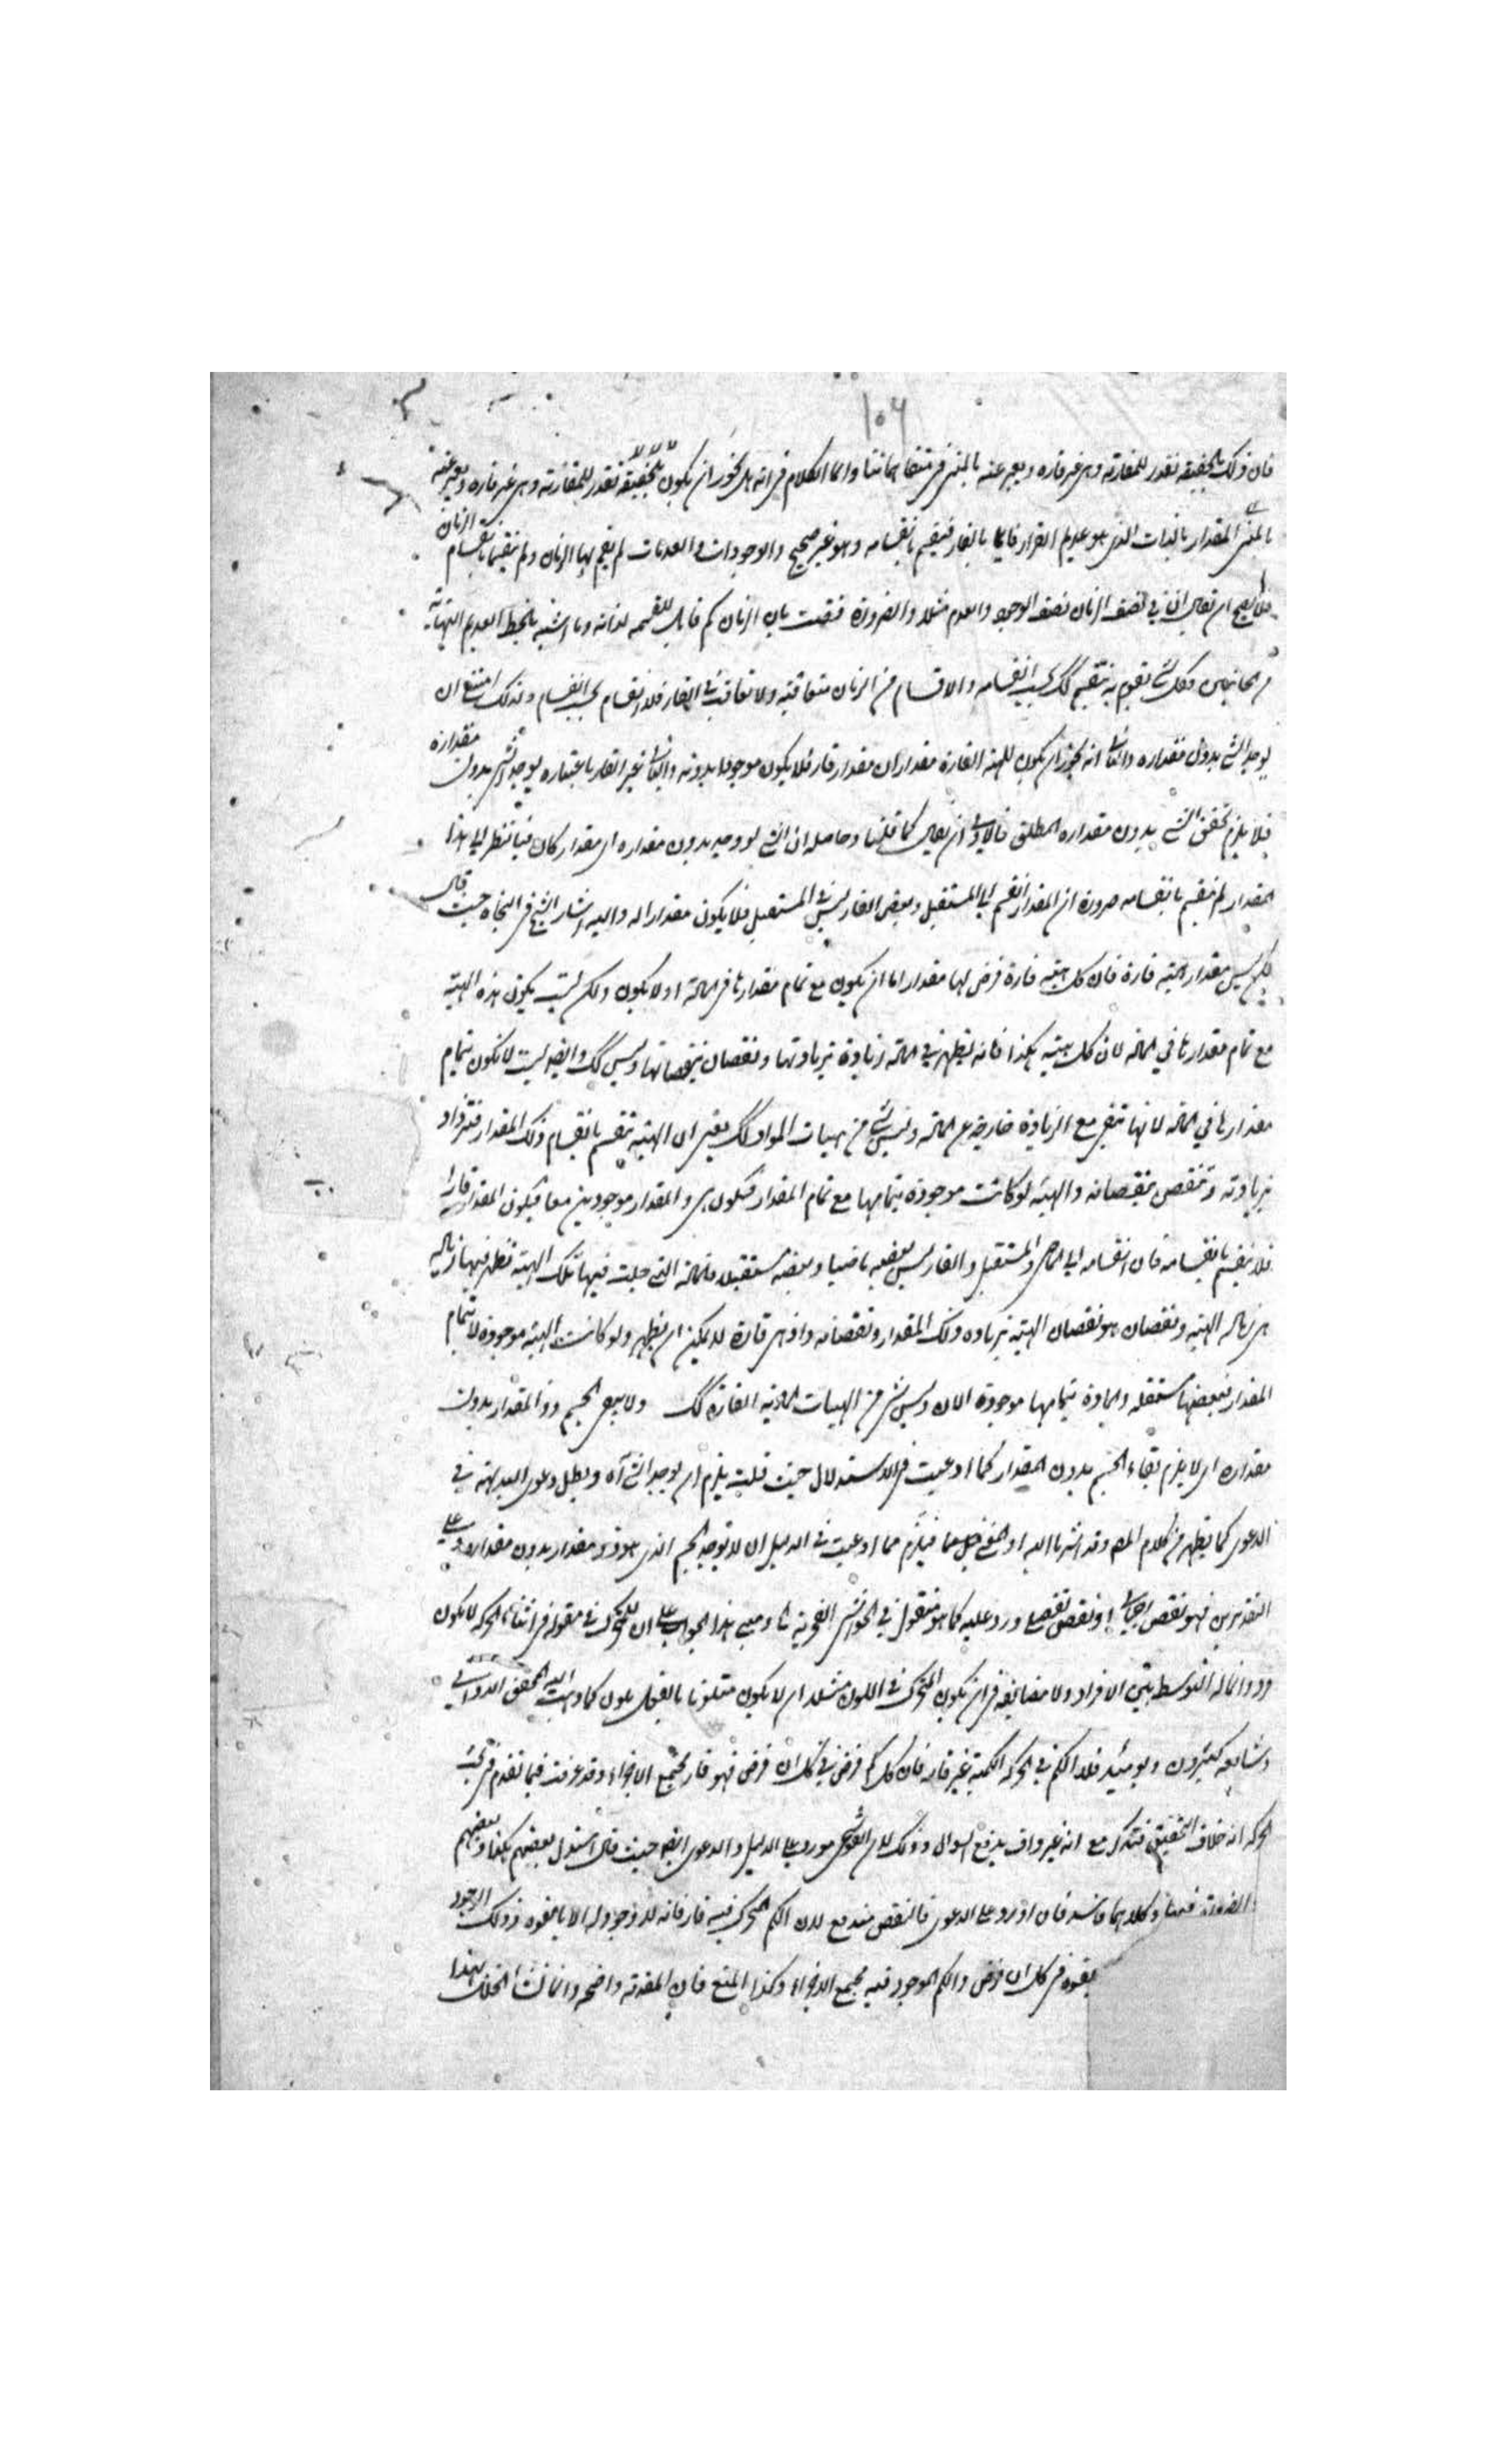 ١٠٦
فان ذلك بالحقيقة تقدر للمقارنة وهي غير قاره ويعبر عنه بالمتى في متفاهماتنا وانما الكلام في انه هل يجوز ان يكون بالحقيقة تقدر للمقارنة وهي غير قاره ويعبر عنه
بالمتى المقدار بالذات الذي هو عديم القرار قايما بالقار فينقسم بانقسامه وهو غير صحيح والوجودات والعدمات لم يقم بها الزمان ولم تنقسما بانقسام الزمان
فلا يصح ان يقال ان في نصف الزمان نصف الوجود والعدم مثلا والضرورة قضت بان الزمان كم قابل للقسمة لذاته وما اشبه بالخط العديم النهاية
من الجانبين وكل شي تقوم به ينقسم كك بحسب انقسامه والاقسام من الزمان متعاقبة ولا تعاقب في القار فلا انقسام بحسب انقسام ولذلك امتنع ان
يوجد الشي بدون مقداره والثاني انه يجوز ان يكون للهيئة القارة مقداران مقدار قار فلا يكون موجودا بدونه والثاني غير القار باعتباره يوجد الشي بدون مقداره
فلا يلزم تحقق الشي بدون مقداره المطلق فالاولى ان يقال كما قلنا وحاصله ان الشي لو وجد بدون مقداره اى مقدار كان فبالنظر الى هذا
المقدار لم ينقسم بانقسامه ضرورة ان المقدار انقسم الى المستقبل وبعض القار ليس في المستقبل فلا يكون مقدارا له واليه اشار الشيخ في النجاة حيث قال
ليس مقدار هيئة قارة فان كل هيئة قارة فرض لها مقدار اما ان يكون مع تمام مقدارها في المادة او لا يكون ولكن ليست يكون هذه الهيئة
مع تمام مقدارها في المادة لان كل هيئة هكذا فانه يظهر في المادة زيادة بزيادتها ونقصان بنقصانها وليس كك وايضا ليست لا تكون بتمام
مقدارها في المادة لانها تبقى مع الزيادة خارجة عن المادة وليس شي من هيئات المواد كك يعني ان الهيئة تنقسم بانقسام ذلك المقدار فتزداد
بزيادته وتنقص بنقصانه والهيئة لو كانت موجودة بتمامها مع تمام المقدار فيكون هي والمقدار موجودين معا فيكون المقدار قارا
فلا ينقسم بانقسامه فان انقسامه الى الماضي والمستقبل والقار ليس بعضه ماضيا وبعضه مستقبلا فالمادة التي حلت فيها تلك الهيئة تظهر فيها زيادة
هي زيادة الهيئة ونقصان هو نقصان الهيئة بزيادة ذلك المقدار ونقصانه واذ هي قارة لا يمكن ان يظهر ولو كانت الهيئة موجودة لا بتمام
المقدار فبعضها مستقبلة والمادة بتمامها موجودة الان وليس شي من الهيئات المادية القارة كك ولا يبقى الجسم ذو المقدار بدون
مقداره اى لا يلزم بقاء الجسم بدون المقدار كما ادعيت في الاستدلال حيث قلت يلزم ان يوجد الشي آه وبطل دعوى البداهة في
الدعوى كما يظهر من كلام المص وقد اشرنا اليه فيلزم مما ادعيت في الدليل ان لا يوجد الجسم الذي هو ذو مقدار بدون مقداره وعلى
التقديرين فهو نقض اجمالي او نقض تفصيلي ورد عليه كما هو منقول في الحواشي الفخرية بناء مبنى هذا الجواب على ان للمتحرك في مقولة في اثناء الحركة لا يكون
وانما له التوسط بين الافراد ولا مضايقة في ان يكون المتحرك في اللون مثلا ان لا يكون متلونا بالفعل بلون كما ذهب اليه المحقق الدواني
وشايعه كثيرون ويومئذ فلا الكم في الحركة الكمية غير قار فان كل كم فرض في كل ان فرض فهو قار مجتمع الاجزاء وقد عرفت فيما تقدم في بحث
الحركة انه خلاف التحقيق فتدرك مع انه غير واف بدفع السوال وذلك لان القوشجي مورد على الدليل والدعوى ايضا حيث قال استدل بعضهم بكذا وبعضهم
وكلاهما فاسد فان اورد على الدعوى فالنقض مندفع لان الكم المتحرك فيه قار فانه لا وجود له الا بالقوة وذلك الوجود
بقوة في كل ان فرض والكم الموجود فيه مجتمع الاجزاء وكذا المنع فان المقدمة واضحة وانما نشأ الخلاف بهذا